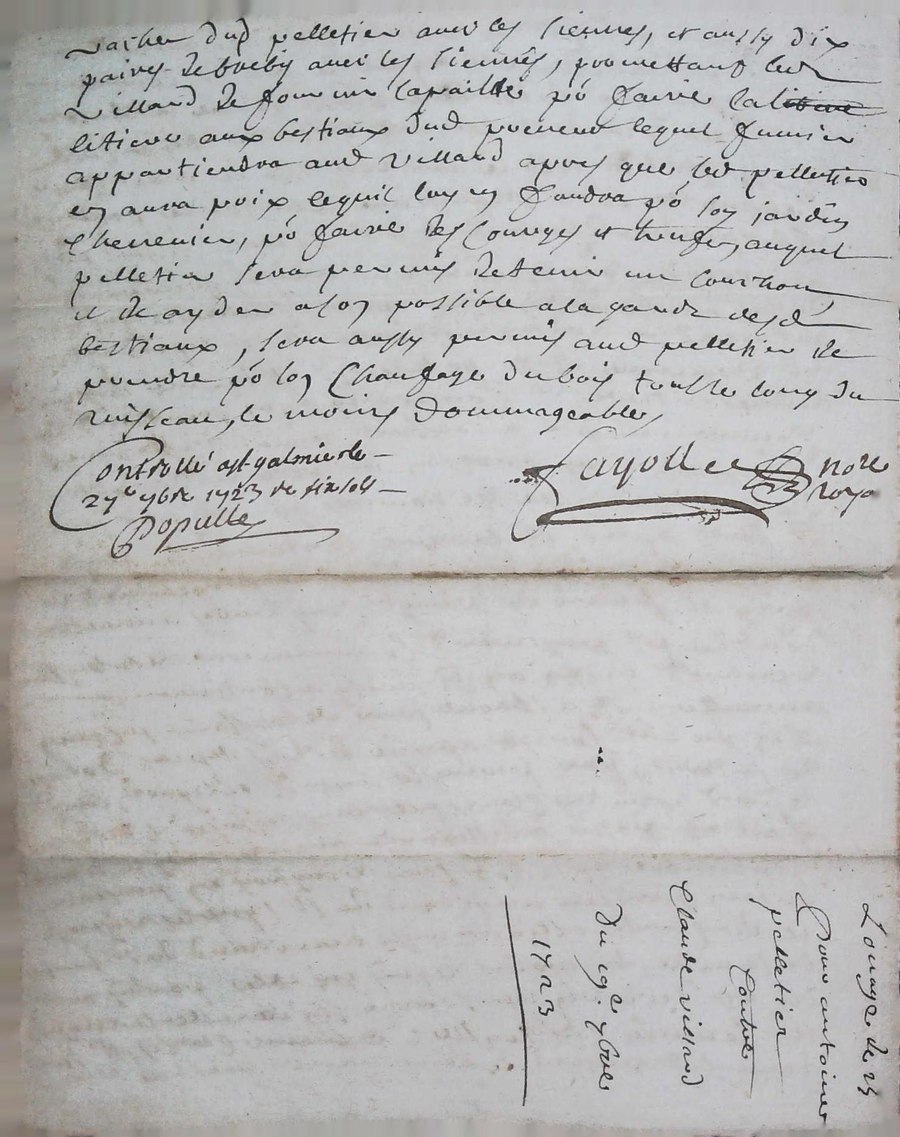 vaches dud pelletier avec les siennes, et aussy dix
paires de brebis avec les siennes, promettant led
villard de fournir la paille po faire la
litiere aux bestiaux dud preneur lequel fumier
appartiendra aud villard apres que led pelletier
en aura prix ce quil luy en faudra po son jardin
chenevier, po faire des courges et auquel
pelletier sera permis de tenir un courhon
et de ayder a son possible a la garde desd
bestiaux, sera aussy permis aud pelletier de
prendre po son chaufage du bois tout le long du
ruisseau, le moins dommageable,
Controllé a st galmier le
27e 9bre 1723 re six sols
Populle
Fayolle nore
roya
Louage de
Pour antoine
pelletier
Contre
Claude villard
Du 19e 9bre
1723